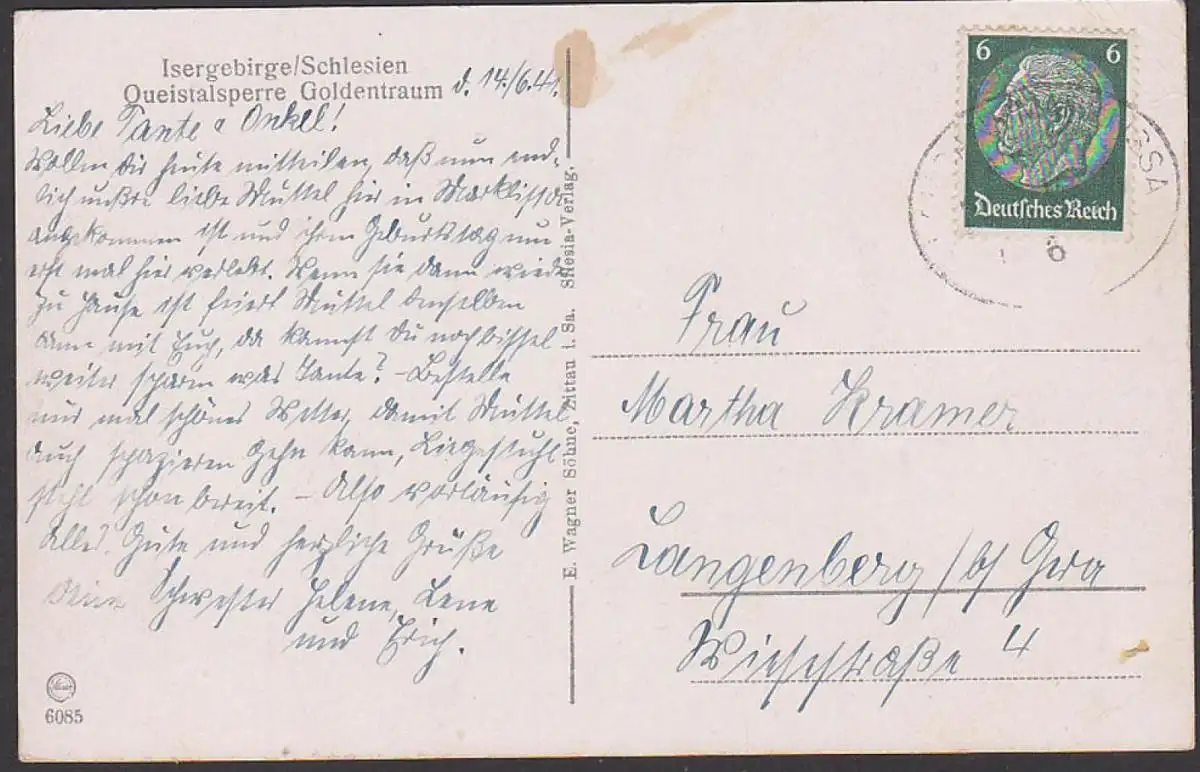 Isergebirge/Schlesien
Queistalsperre Goldentraum d. 14./6.41.
Liebe Tante u Onkel!
Wollen Dir heute mitteilen, daß nun end-
lich unsre liebe Muttel hier in Marklissa
angekommen ist und ihren Geburtstag nun
erst mal hier verlebt. Wenn sie dann wieder
zu Hause ist feiert Muttel denselben
dann mit Euch, da kannst Du noch bissel
weiter sparen was Tante? - Bestelle
nur mal schönes Wetter, damit Muttel
auch spazieren gehn kann, Liegestuhl
steht schon bereit. - Also vorläufig
alles Gute und herzliche Grüße
Deine Schwester Helene, Lene
und Erich.
6085
E. Wagner Söhne, Zittau i. Sa. Silesia-Verlag.
6 6
Deutsches Reich
6
Frau
Martha Kramer
Langenberg / b/ Gera
Wiesestraße 4